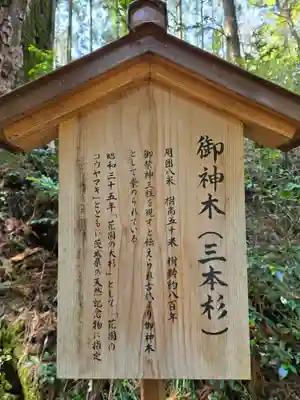 御神木(三本杉)
周囲八米 樹高五十米 樹齢約八百年
御祭神三柱を現すと伝えられ古代より御神木
として崇められている
昭和三十五年「花園の大杉」として、「花園の
コウヤマキ」とともに茨城県の天然記念物に指定